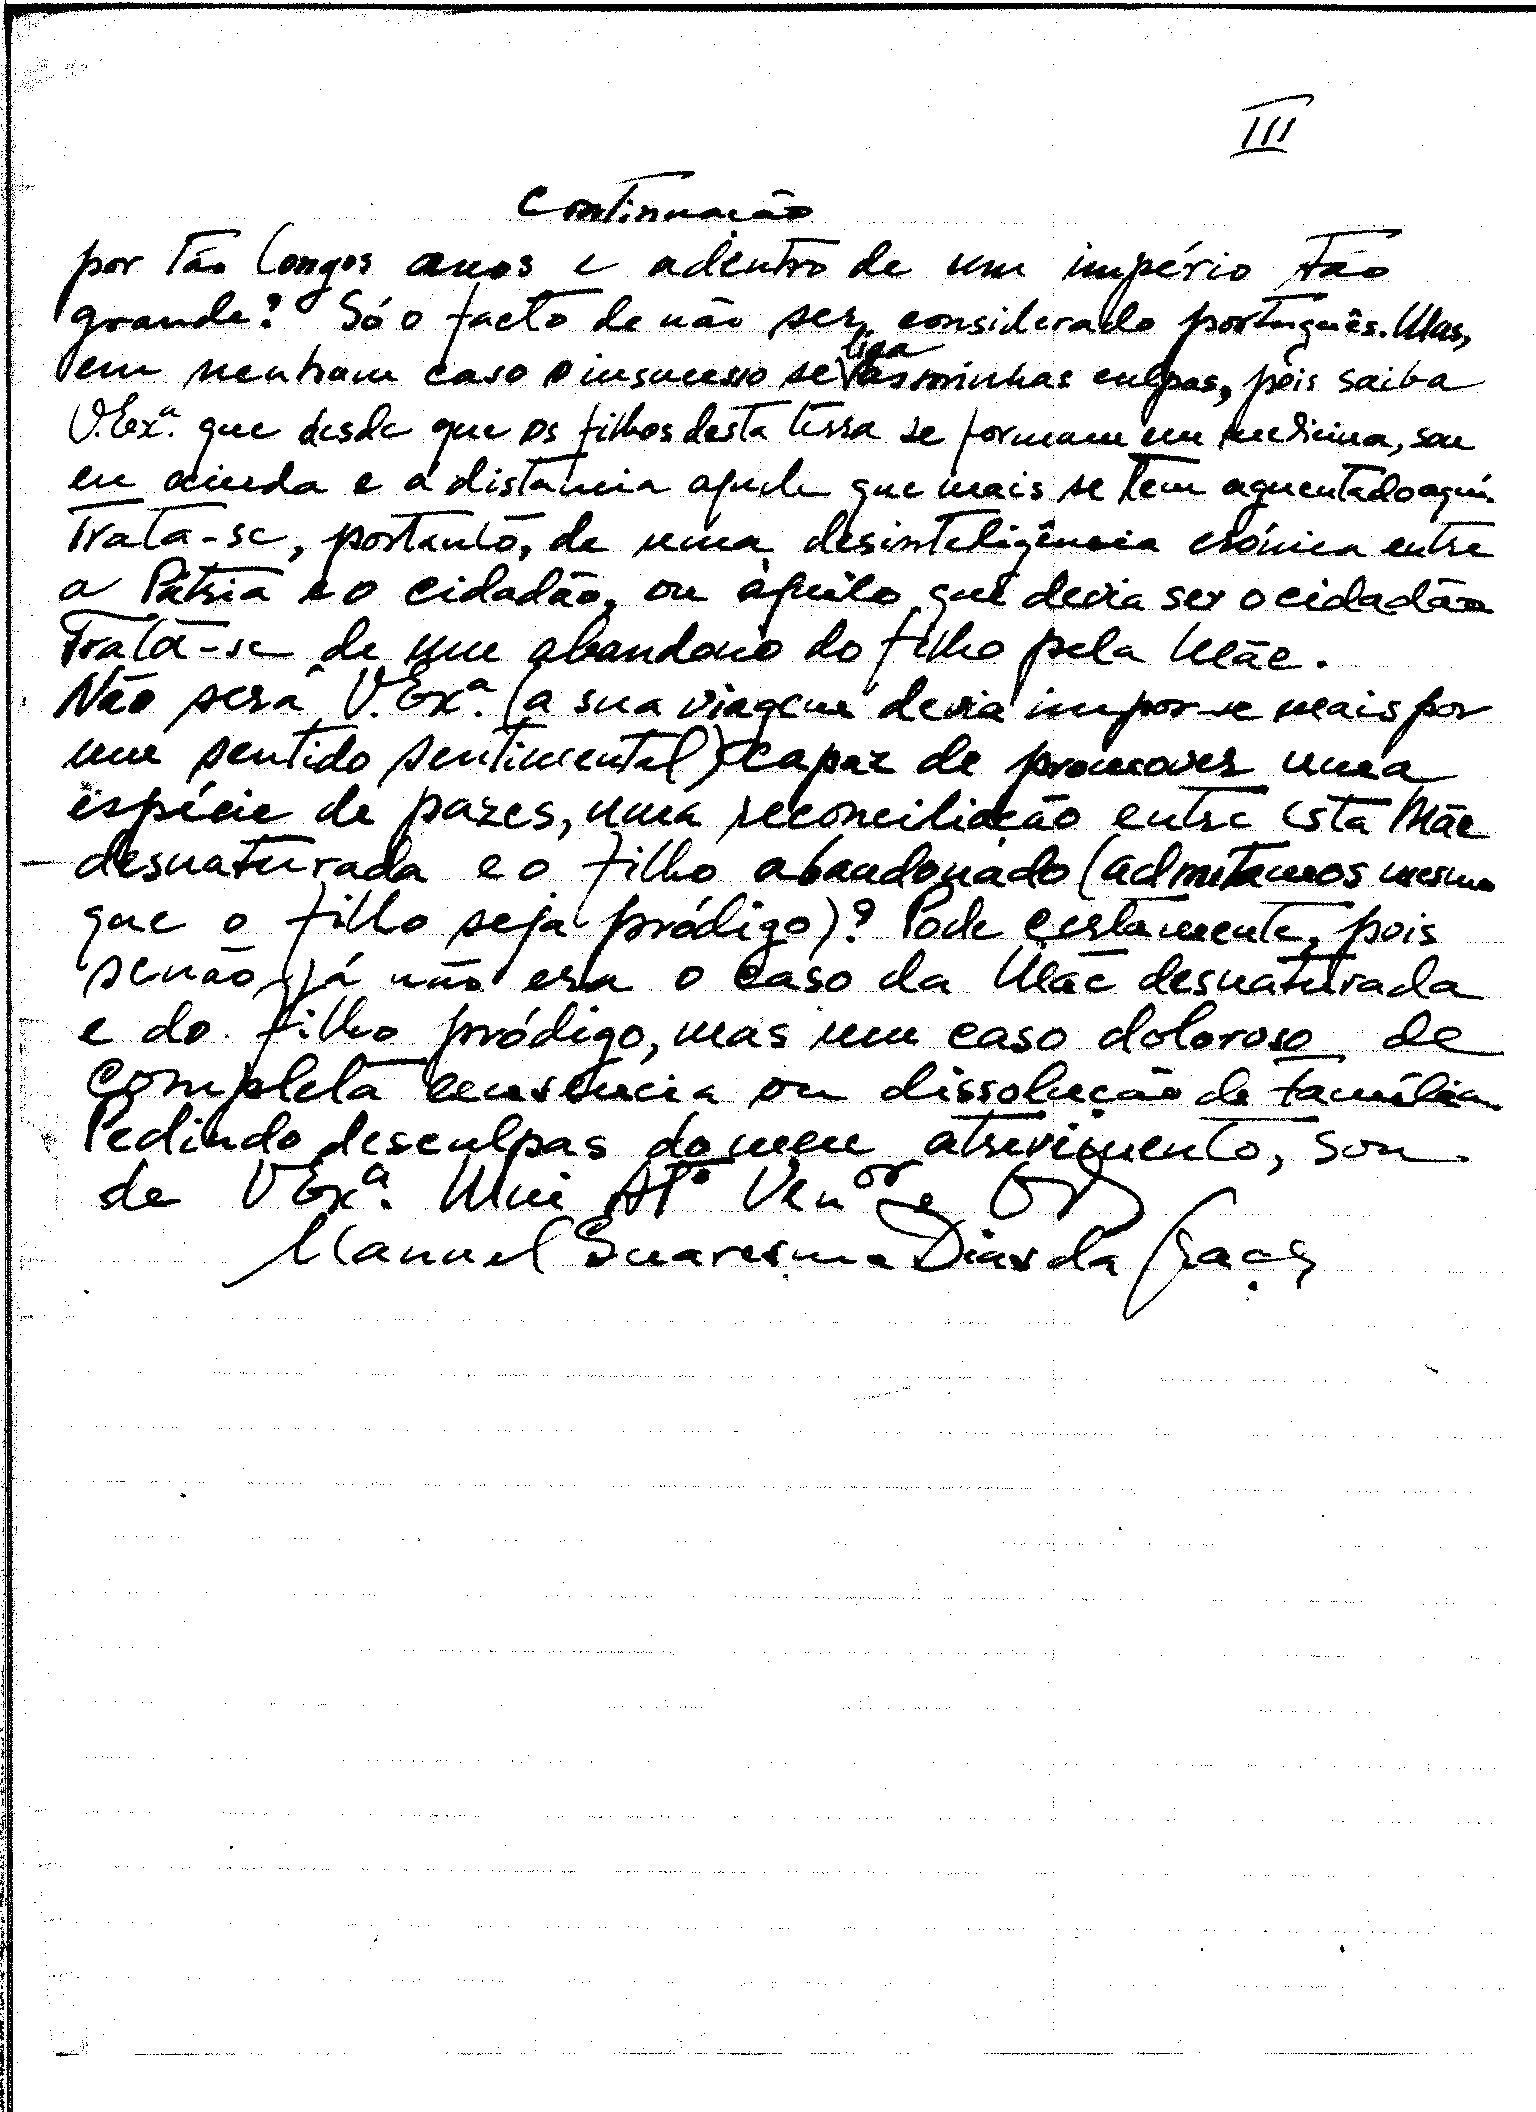 III
Continuação
por tão longos anos e adentro de um império tão
grande? Só o facto de não ser considerado português. Mas,
em nenhum caso o insucesso se liga às minhas culpas, pois saiba
V. Exª. que desde que os filhos desta terra se formam em medicina, sou
eu ainda e à distância aquele que mais se tem aguentado aqui.
Trata-se, portanto, de uma desinteligência crónica entre
a Pátria e o cidadão, ou àquilo que devia ser o cidadão
Trata-se de um abandono do filho pela Mãe.
Não será V. Exª. (a sua viagem devia impor-se mais por
um sentido sentimental) capaz de promover uma
espécie de pazes, uma reconciliação entre esta Mãe
desnaturada e o filho abandonado (admitamos mesmo
que o filho seja pródigo)? Pode certamente, pois
senão já não era o caso da Mãe desnaturada
e do filho pródigo, mas um caso doloroso de
completa ou dissolução de família.
Pedindo desculpas do meu atrevimento, sou
de V Exª. Mui Atº Venºʳ e
Manuel Quaresma Dias da Graça